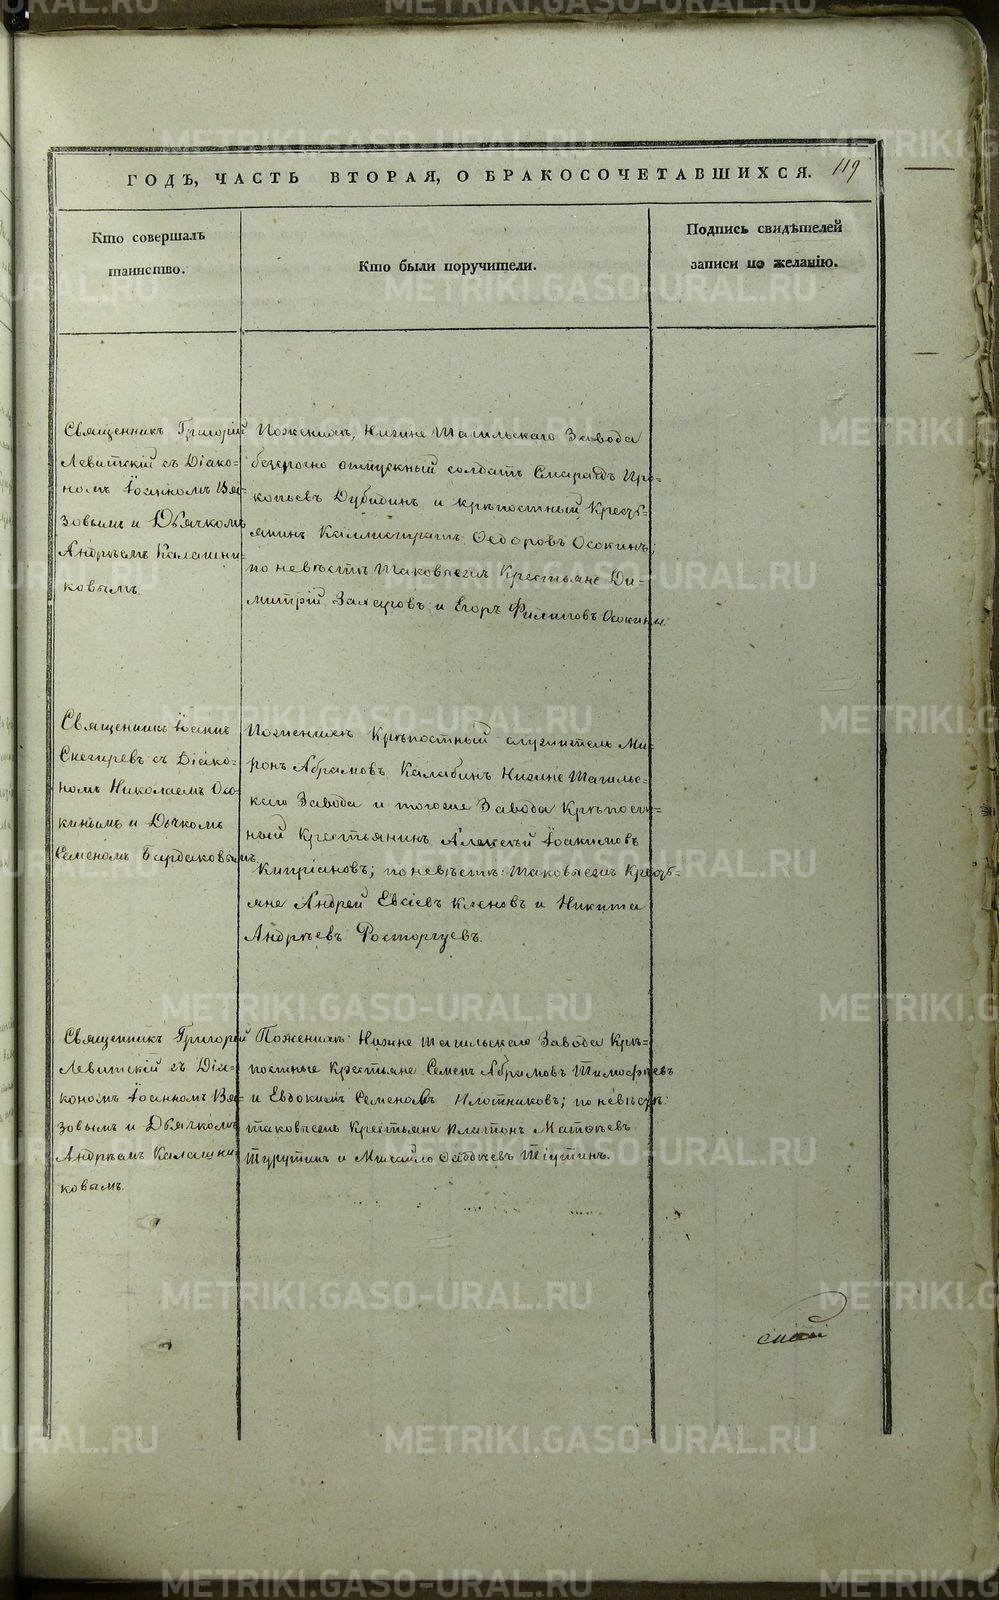 ГОДЪ, ЧАСТЬ ВТОРАЯ, О БРАКОСОЧЕТАВШИХСЯ. 119
Кто совершалъ
таинство.
Кто были поручители.
Подпись свидѣтелей
записи по желанію.
Священникъ Григорій
Левитскій съ Діако-
номъ Іоанномъ Вя-
зовымъ и Дьячкомъ
Андреемъ Калашни-
ковымъ.
По женихѣ, Нижне Тагильскаго Завода
безсрочно отпускный солдатъ Смарагдъ Про-
копьевъ Дубининъ и крѣпостный Кресть-
янинъ Каллистратъ Ѳедоровъ Осокинъ;
по невѣстѣ таковыежъ Крестьяне Ди-
митрій Захаровъ и Егоръ Филиповъ Осокины.
Священникъ Іоаннъ
Снегиревъ съ Діако-
номъ Николаемъ Осо-
кинымъ и Дьчкомъ
Семеномъ Бардаковымъ
По женихѣ Крѣпостный служитель Ми-
ронъ Абрамовъ Калабинъ Нижне Тагильс-
каго Завода и тогоже Завода Крѣпост-
ный Крестьянинъ Алексѣй Іоакимовъ
Кипріановъ; по невѣстѣ: таковыежъ Кресть-
яне Андрей Евсіевъ Кленовъ и Никита
Андреевъ Росторгуевъ.
Священникъ Григорій
Левитскій съ Діа-
кономъ Іоанномъ Вя-
зовымъ и Дьячкомъ
Андреемъ Калашни-
ковымъ.
По женихѣ: Нижне Тагильскаго Завода Крѣ-
постные Крестьяне Семенъ Абрамовъ Тимофѣевъ
и Евдокимъ Семеновъ Плотниковъ; по невѣстѣ:
таковыежъ Крестьяне Платонъ Матвѣевъ
Турутинъ и Михайло Тіутинъ.